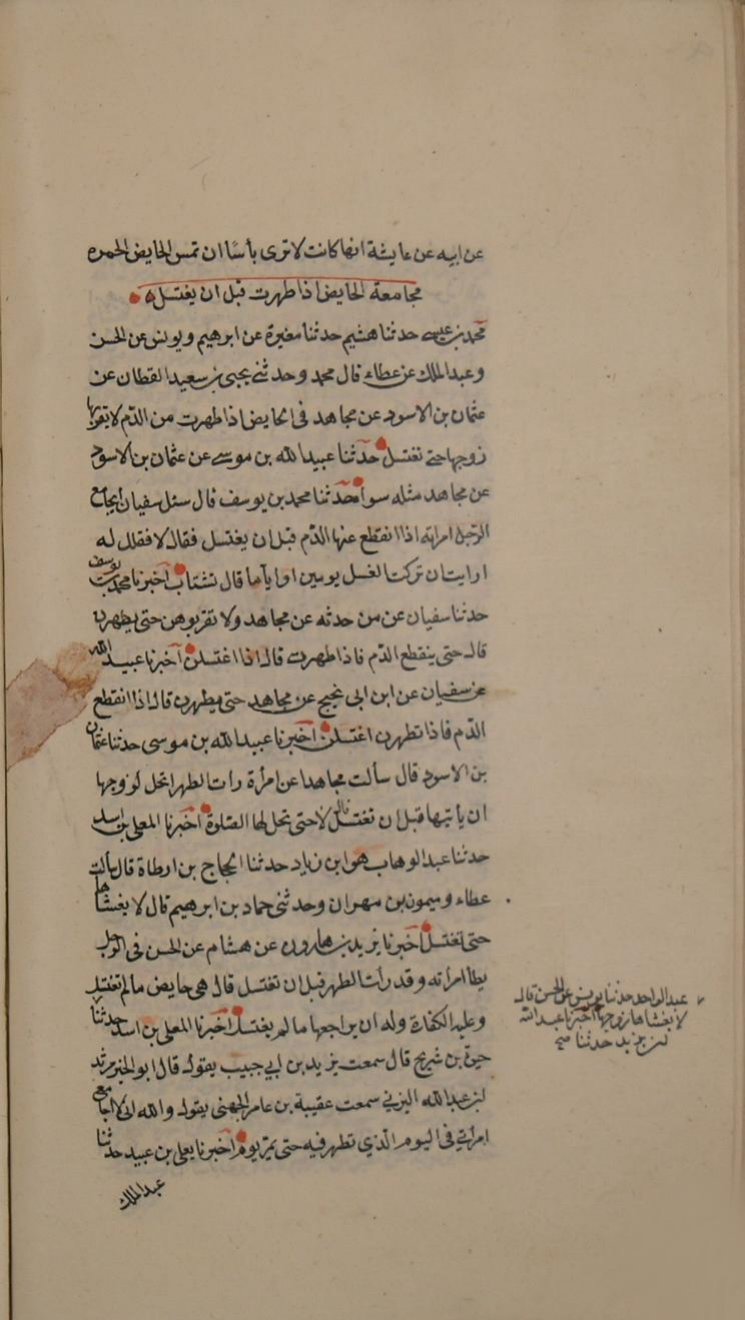 عن ابيه عن عايشة انها كانت لا ترى بأسًا ان تمس الحايض الخمره
مجامعة الحايض اذا طهرت قبل ان يغتسل
محمد بن عيسى حدثنا هشيم حدثنا مغيرة عن ابرهيم ويونس عن الحسن
وعبد الملك عن عطاء قال محمد وحدثني يحيى بن سعيد القطان عن
عثمان بن الاسود عن مجاهد في الحايض اذا طهرت من الدّم لا يقربها
زوجها حتى تغتسل حدثنا عبيد الله بن موسى عن عثمان بن الاسود
عن مجاهد مثله سوا حدثنا محمد بن يوسف قال سئل سفيان ايجامع
الرّجل امراته اذا انقطع عنها الدّم قبل ان يغتسل فقال لا فقلل له
ارايت ان تركت الغسل يومين او اياما قال تستتاب اخبرنا محمد بن يوسف
حدثنا سفيان عن من حدثه عن مجاهد ولا تقربوهن حتى يطهرن
قال حتى ينقطع الدّم فاذا طهرت قال اذا اغتسلن اخبرنا عبيد الله
عن سفيان عن ابن ابي نجيح عن مجاهد حتى يطهرن قال اذا انقطع
الدّم فاذا تطهرن اغتسلن اخبرنا عبيد الله بن موسى حدثنا عثمان
بن الاسود قال سألت مجاهدا عن امرأة رات الطهر اتحل لزوجها
ان ياتيها قبل ان تغتسل قال لا حتى تحل لها الصّلوة اخبرنا المعلى بن اسد
حدثنا عبد الوهاب هو ابن زياد حدثنا الحجاج بن ارطاة قال سألت
عطاء وميمون بن مهران وحدثني حماد بن ابرهيم قال لا يغشاها
حتى تغتسل اخبرنا يزيد بن هارون عن هشام عن الحسن في الرجل
يطا امراته وقد رات الطهر قبل ان تغتسل قال هي حايض ما لم تغتسل
وعليه الكفارة وله ان يراجعها ما لم يغتسل اخبرنا المعلى بن اسد حدثنا
حيوة بن شريح قال سمعت يزيد بن ابي حبيب يقول قال ابو الخير مرثد
بن عبد الله اليزني سمعت عقيبة بن عامر الجهني يقول والله اني لا اجامع
امراتي في اليوم الذي تطهر فيه حتى يمرّ يوم اخبرنا يعلى بن عبيد حدثنا
عبد الملك
عبد الواحد حدثنا يونس عن الحسن قال
لا يغشاها زوجها اخبرنا عبد الله
بن يزيد حدثنا صح